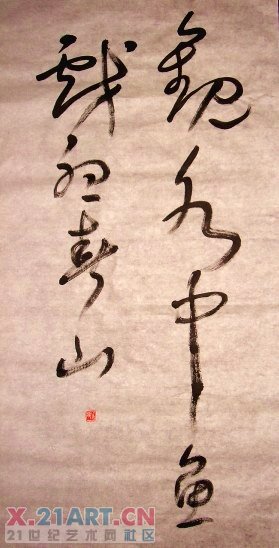 觀水中魚
戲春山
X.21ART.CN
21世纪艺术网社区